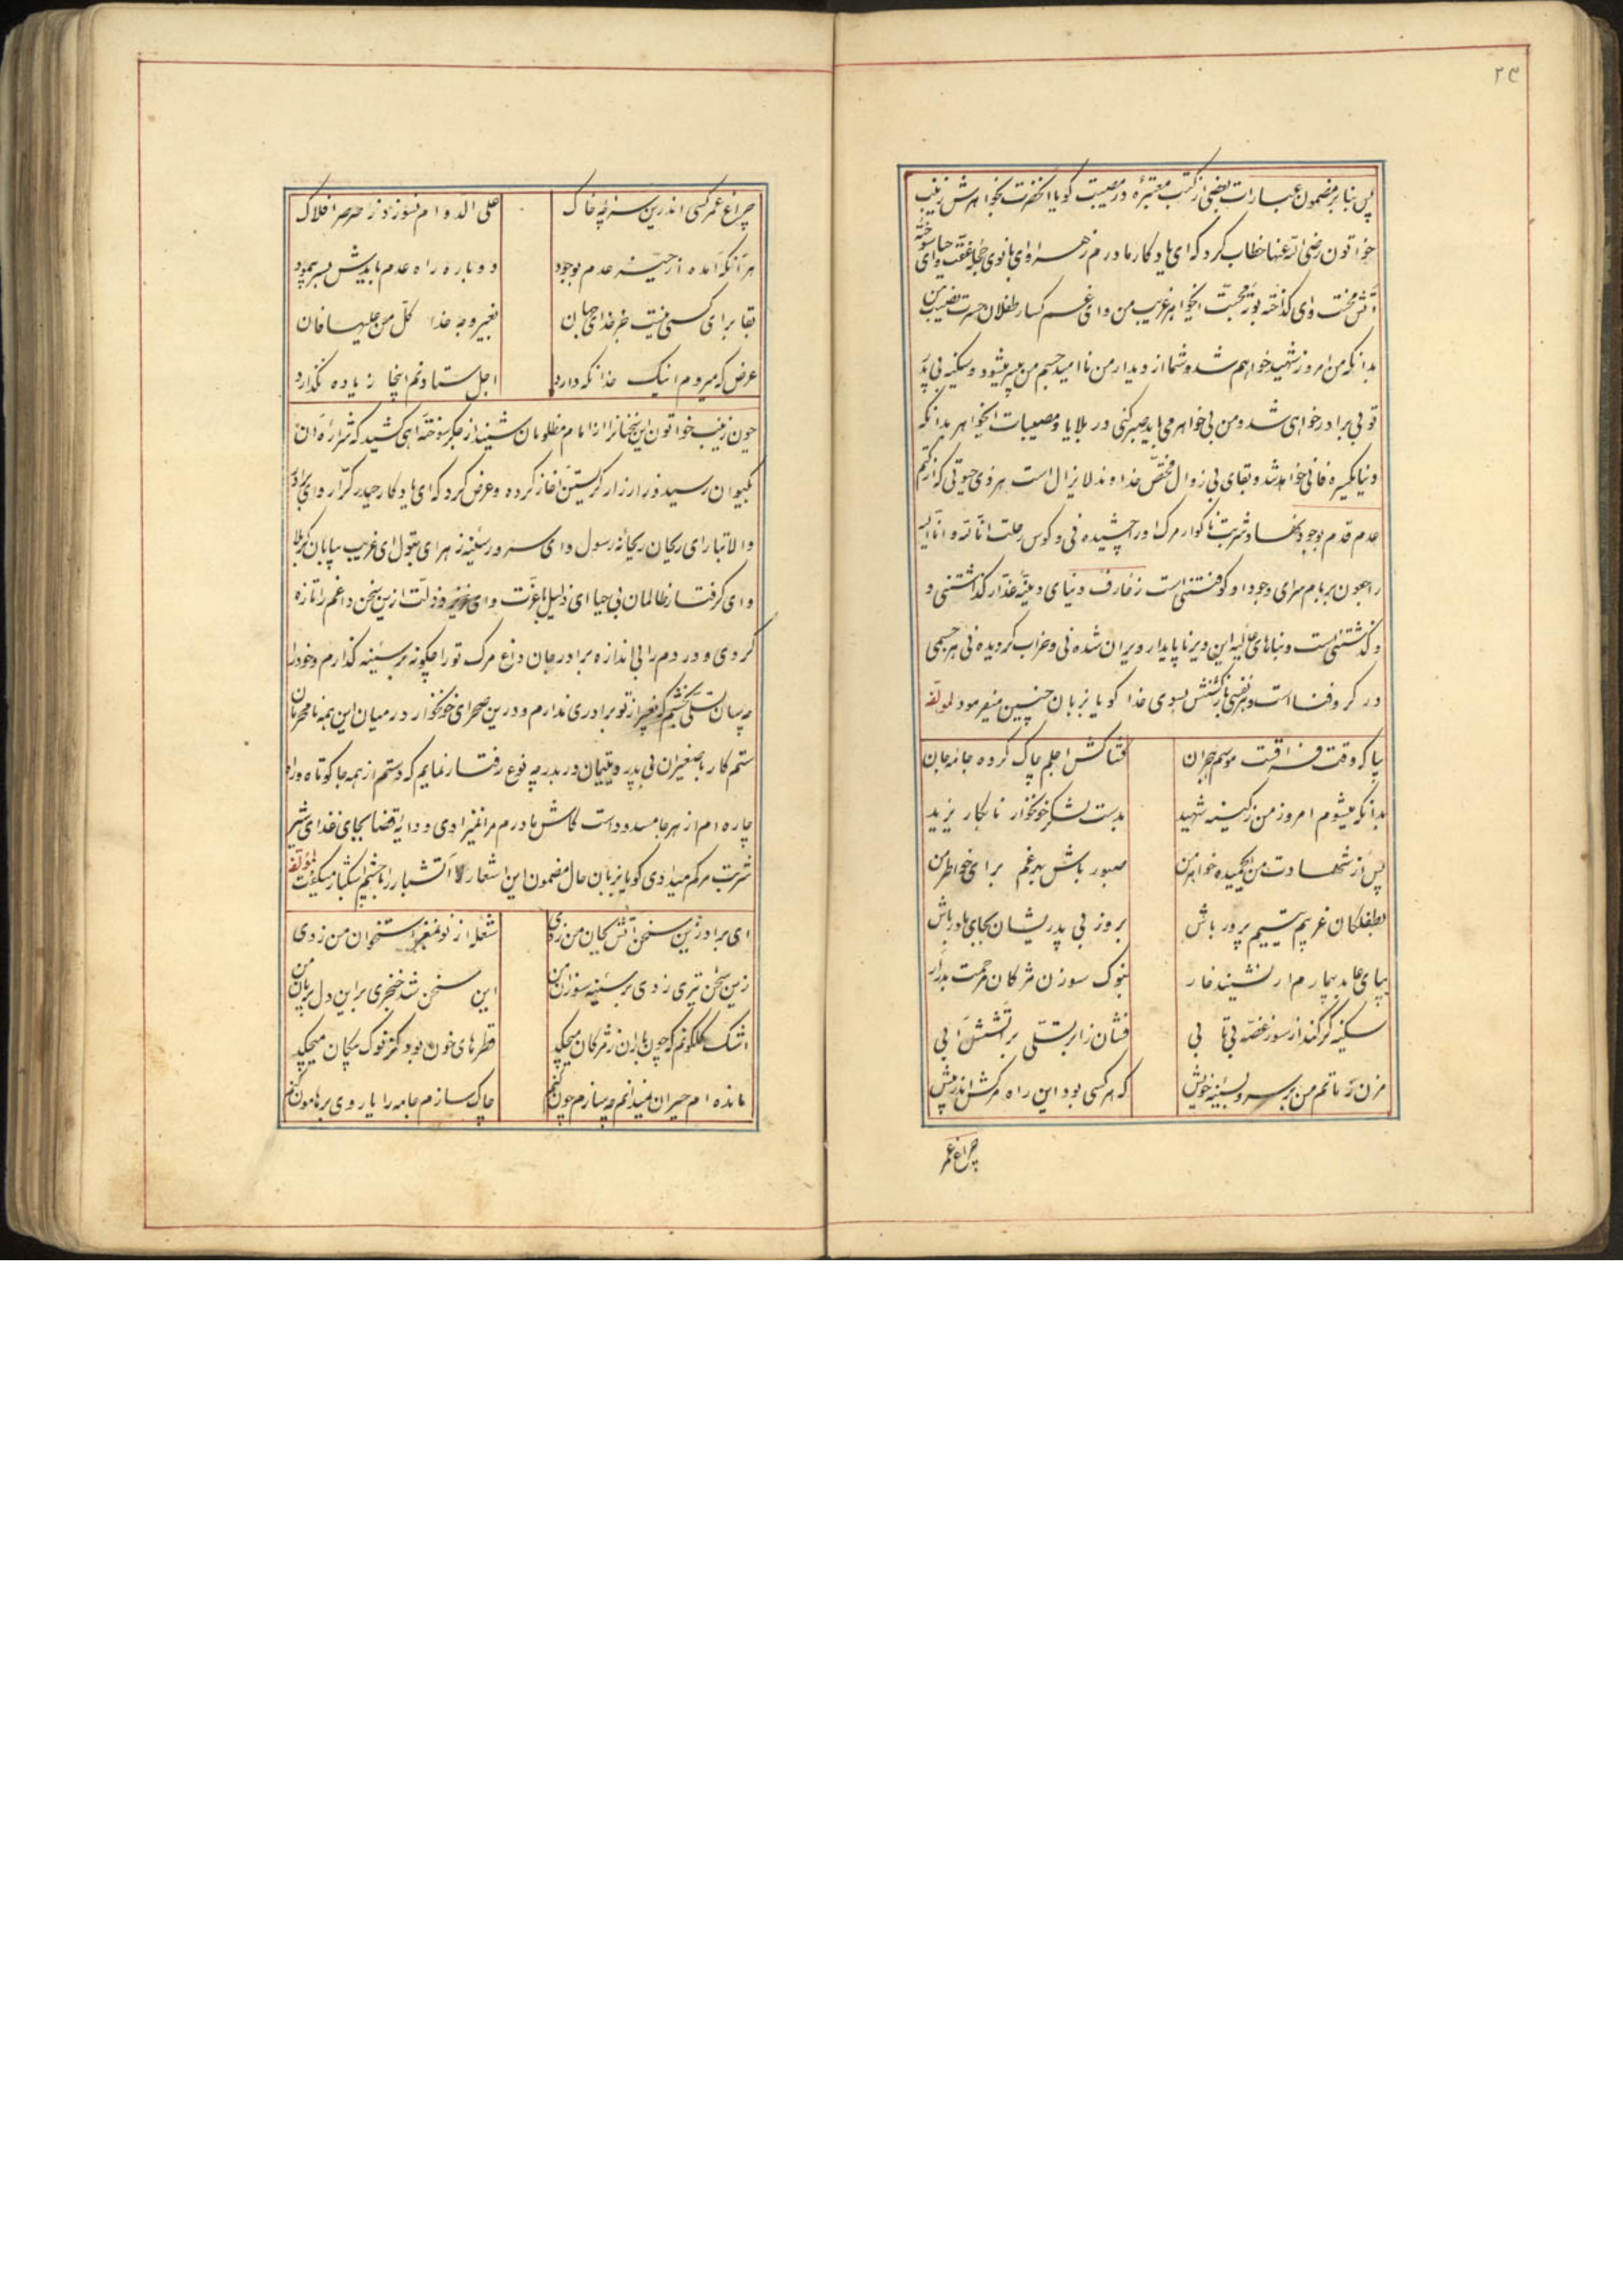 ۲۴
پس بنا بر مضمون عبارات بعضی از کتب معتبره در مصیبت کویا انحضرت بخواهرش زینب
خواتون رضی الله عنها خطاب کرد که ای یادکار مادرم زهرا و ای بانوی حجله عفت و حیا وای سوخته
آتش محنت وای کداخته بوته محبت ایخواهر غریب من وای غمکسار طفلان حسرت نصیب من
بدانکه من امروز شهید خواهم شد و شما از دیدار من ناامید جسم من بیسر میشود و سکینه بی پدر
تو بی برادر خواهی شد و من بی خواهر می باید صبر کنی در بلایا و مصیبات ایخواهر بدانکه
دنیا یکسره فانی خواهد شد و بقای بی زوال مختص خداوند لا یزال است هر ذی حیوتی که از کتم
عدم قدم بوجود نهاد شربت ناکوار مرک را در چشیده نی و کوس رحلت انا لله و انا الیه
راجعون بر بام سرای وجود او کوفتنی است زخارف دنیای دنیه غدار کذاشتنی و
و کذشتنی است و بناهای عالیه این دیر ناپایدار ویران شده نی و خراب کردیده نی هر جسمی
در کرو فنا است و هر نفسی بازکشتش بسوی خدا کویا بزبان چنین میفرمود لمولفه
بیا که وقت فراقت موسم هجران
فتاکش اجلم چاک کرده جامه جان
بدانکه میشوم امروز من ز کینه شهید
بدست لشکر خونخوار نابکار یزید
پس از شهادت من ایحمیده خواهر من
صبور باش بهر غم برای خواطر من
بطفلکان غریبم یتیم پرور باش
بروز بی پدریشان بجای مادر باش
بپای عابد بیمارم ار نشیند خار
بنوک سوزن مژکان مرحمت بدرار
سکینه کر کند از سوز غصه بی تابی
فشان ز ابر تسلی بر آتشش آبی
مزن ز ماتم من بر سر و بسینه خویش
که هر کسی بود این راه مرکش اندر پیش
چراغ عمر
چراغ عمر کسی اندرین سراچه خاک
علی الدوام نسوزد ز صرصر افلاک
هر آنکه آمده از حیز عدم بوجود
دوباره راه عدم بایدش بسر پیمود
بقا برای کسی نیست جز خدای جهان
بغیر وجه خدا کل من علیها فان
غرض که میروم اینک خدا نکه دارد
اجل ستاده نم اینجا زیاده نکذارد
چون زینب خواتون این سخنانرا از امام مظلومان شنید از جکر سوخته آهی کشید که شراره آن
بکیوان رسید و زار زار کریستن آغاز کرده و عرض کرد که ای یادکار حیدر کرار و ای برادر
والاتبار ای ریحان ریحانه رسول و ای سرور سینه زهرای بتول ای غریب بیابان کربلا
وای کرفتار ظالمان بی حیا ای ذلیل با عزت و ای عزیز و ذلت ازین سخن داغم را تازه
کردی و دردم را بی اندازه برادر جان داغ مرک تو را چکونه بر سینه کذارم و خود را
چه سان تسلی بخشم که بغیر از تو برادری ندارم و درین صحرای خونخوار در میان این همه نامحرمان
ستم کار با صغیران بی پدر و یتیمان در بدر چه نوع رفتار نمایم که دستم از همه جا کوتاه و راه
چاره ام از هر جا مسدود است کاش مادرم مرا نمیزادی و دایه قضا بجای غذای شیر
شربت مرکم میدادی کویا بزبان حال مضمون این اشعار آتشبار را با چشم اشکبار میکفت لمولفه
ای برادر زین سخن آتش بجان من زدی
شعله از نو بمغز استخوان من زدی
زین سخن تیری زدی بر سینه سوزان من
این سخن شد خنجری بر این دل بریان من
اشک کلکونم که چون باران ز مژکان میچکد
قطرهای خون بود کز نوک پیکان میچکد
مانده ام حیران نمیدانم چه سازم چون کنم
چاک سازم جامه را یا روی بر هامون کنم